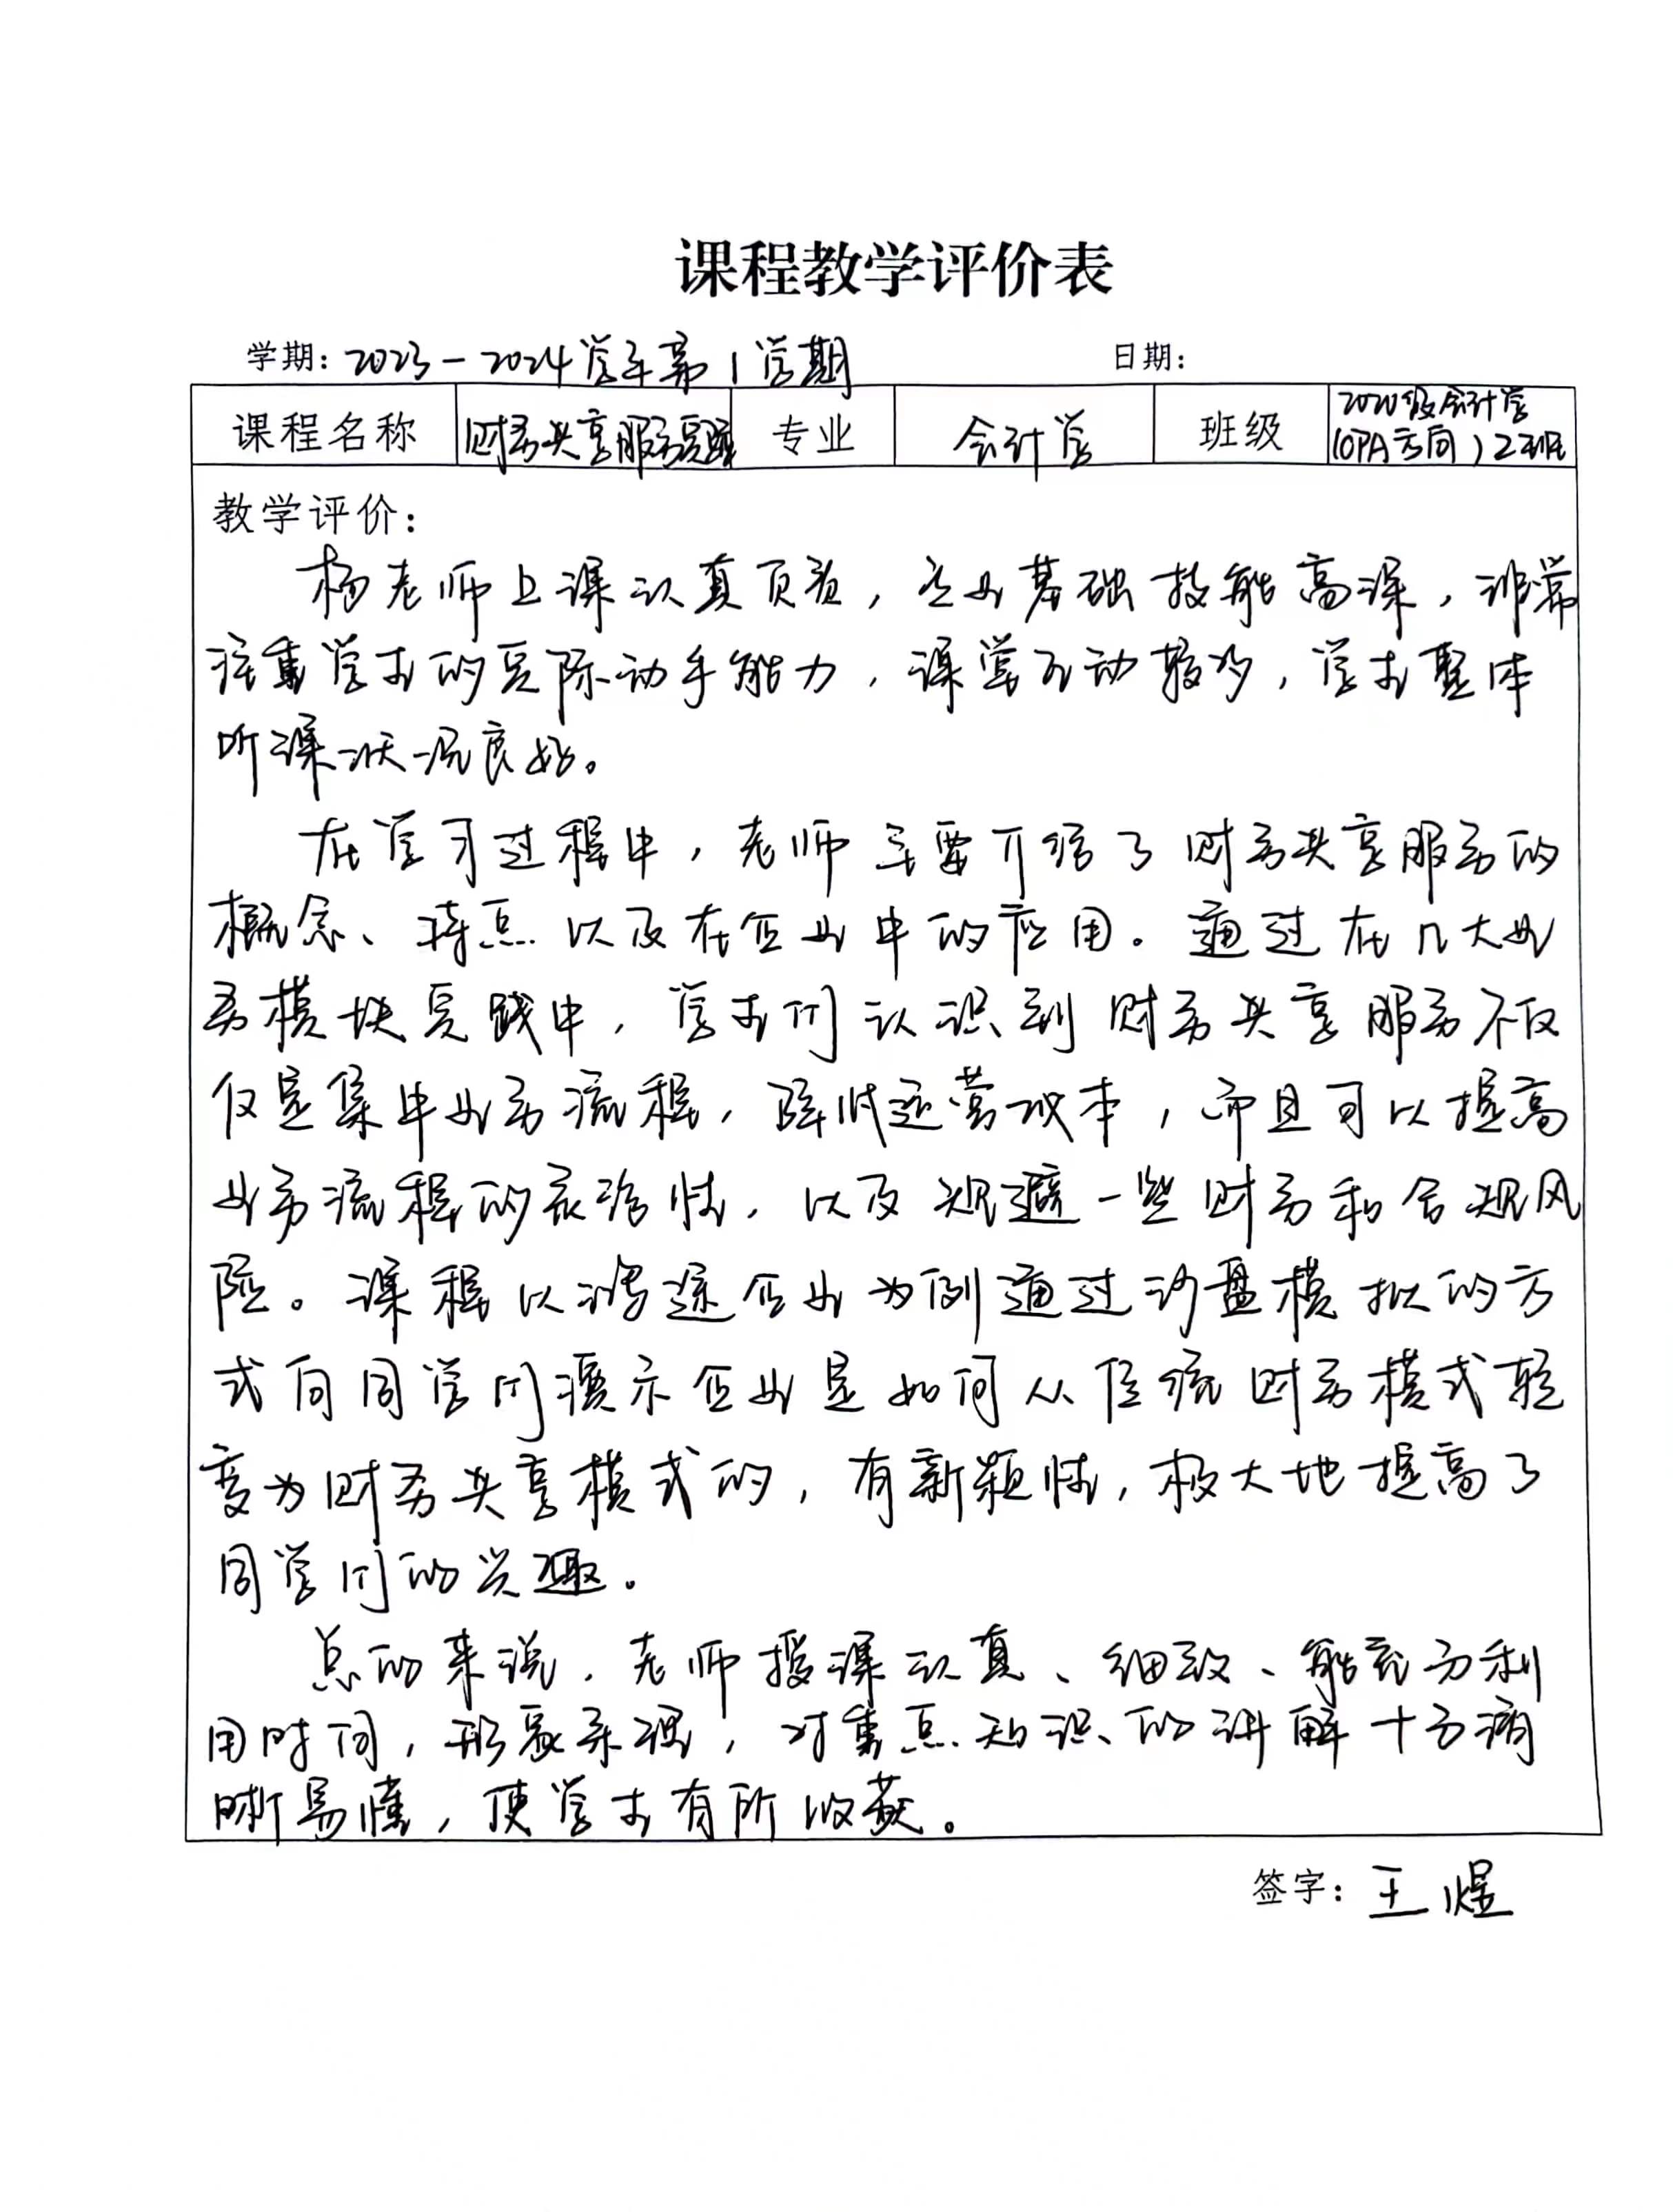 课程教学评价表
学期：2023-2024学年第1学期 日期：
课程名称 财务共享服务实践 专业 会计学 班级 2020级会计学(CPA方向)2班
教学评价：
杨老师上课认真负责，专业基础技能高深，非常
注重学生的实际动手能力，课堂互动较多，学生整体
听课状况良好。
在学习过程中，老师主要介绍了财务共享服务的
概念、特点以及在企业中的应用。通过在几大业
务模块实践中，学生们认识到财务共享服务不仅
仅是集中业务流程，降低运营成本，而且可以提高
业务流程的灵活性，以及规避一些财务和合规风
险。课程以鸿途企业为例通过沙盘模拟的方
式向同学们演示企业是如何从传统财务模式转
变为财务共享模式的，有新颖性，极大地提高了
同学们的兴趣。
总的来说，老师授课认真、细致、能充分利
用时间，形象条理，对重点知识的讲解十分清
晰易懂，使学生有所收获。
签字：王煜